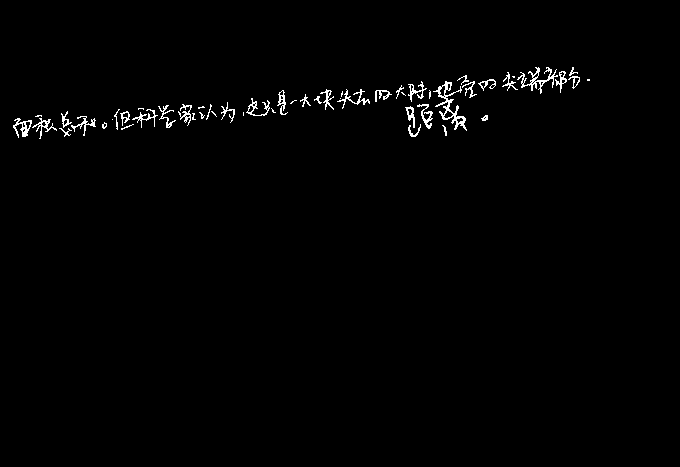 面积总和。但科学家认为,这只是一大块失去的大陆,地壳的尖端部分.
距离。